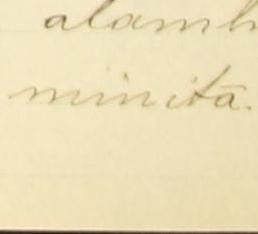 alamb
minitā.